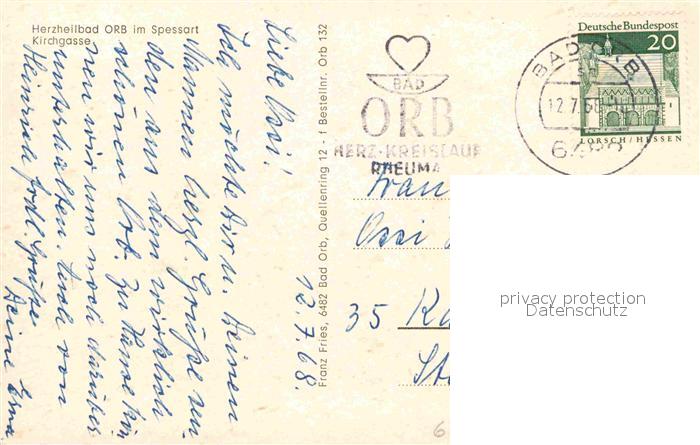 Herzheilbad ORB im Spessart
Kirchgasse
Liebe Ossi!
Ich möchte Dir u. Deinen
Mannen herzl. Grüße sen-
den aus dem wirklich
schönen Orb. Zu Hause kön
nen wir uns noch darüber
unterhalten. Auch von
Heinrich frdl. Grüße
Deine Erna
12.7.68.
Franz Fries, 6482 Bad Orb, Quellenring 12 - f Bestellnr. Orb 132
BAD
ORB
HERZ-KREISLAUF
RHEUMA
BAD ORB
12.7.68
Deutsche Bundespost
20
LORSCH/HESSEN
Frau
Ossi
35 Ka
St
privacy protection
Datenschutz
6